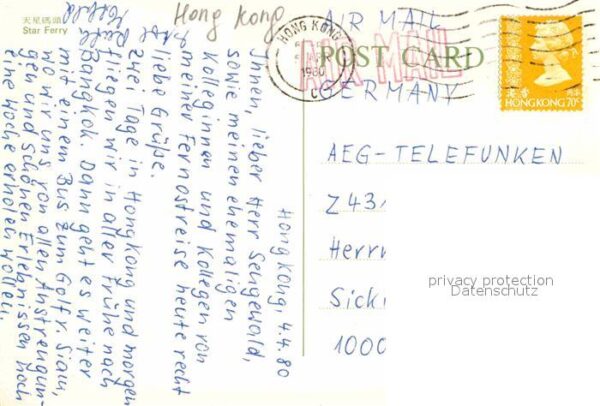 天星碼頭
Star Ferry
Hong Kong
HONG KONG
1980
C
AIR MAIL
POST CARD
AIR MAIL
GERMANY
香港
HONG KONG 70¢
AEG-TELEFUNKEN
Z43/
Herrn
Sick
1000
privacy protection
Datenschutz
Hongkong, 4.4.80
Ihnen, lieber Herr Sengewald,
sowie meinen ehemaligen
Kolleginnen und Kollegen von
meiner Fernostreise heute recht
liebe Grüße.
Zwei Tage in Hongkong und morgen
fliegen wir in aller Frühe nach
Bangkok. Dann geht es weiter
mit einem Bus zum Golf v. Siam,
wo wir uns von allen Anstrengun-
gen und schönen Erlebnissen noch
eine Woche erholen wollen.